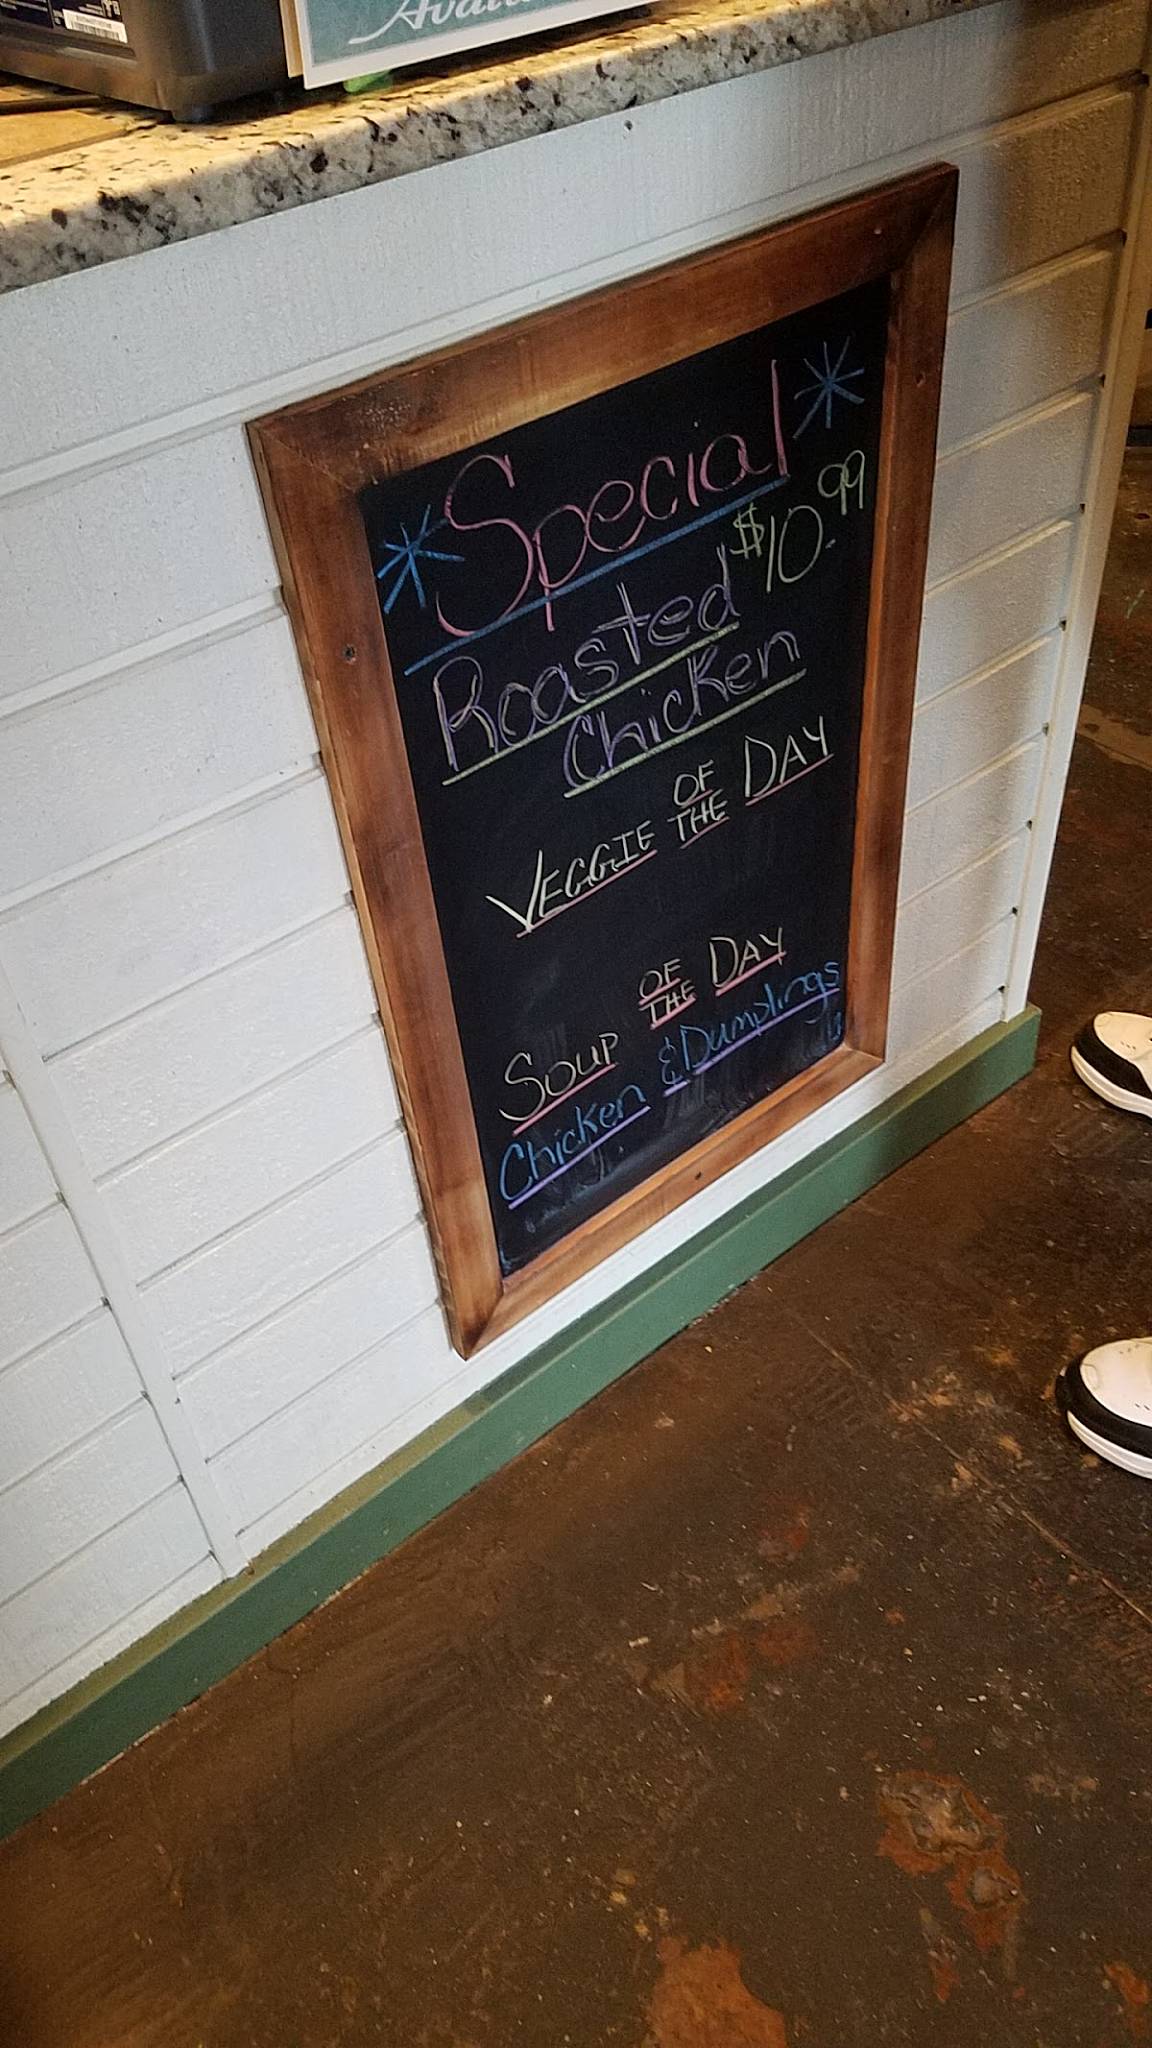 *Special*
$10.99
Roasted
Chicken
VEGGIE OF THE DAY
SOUP OF THE DAY
Chicken & Dumplings